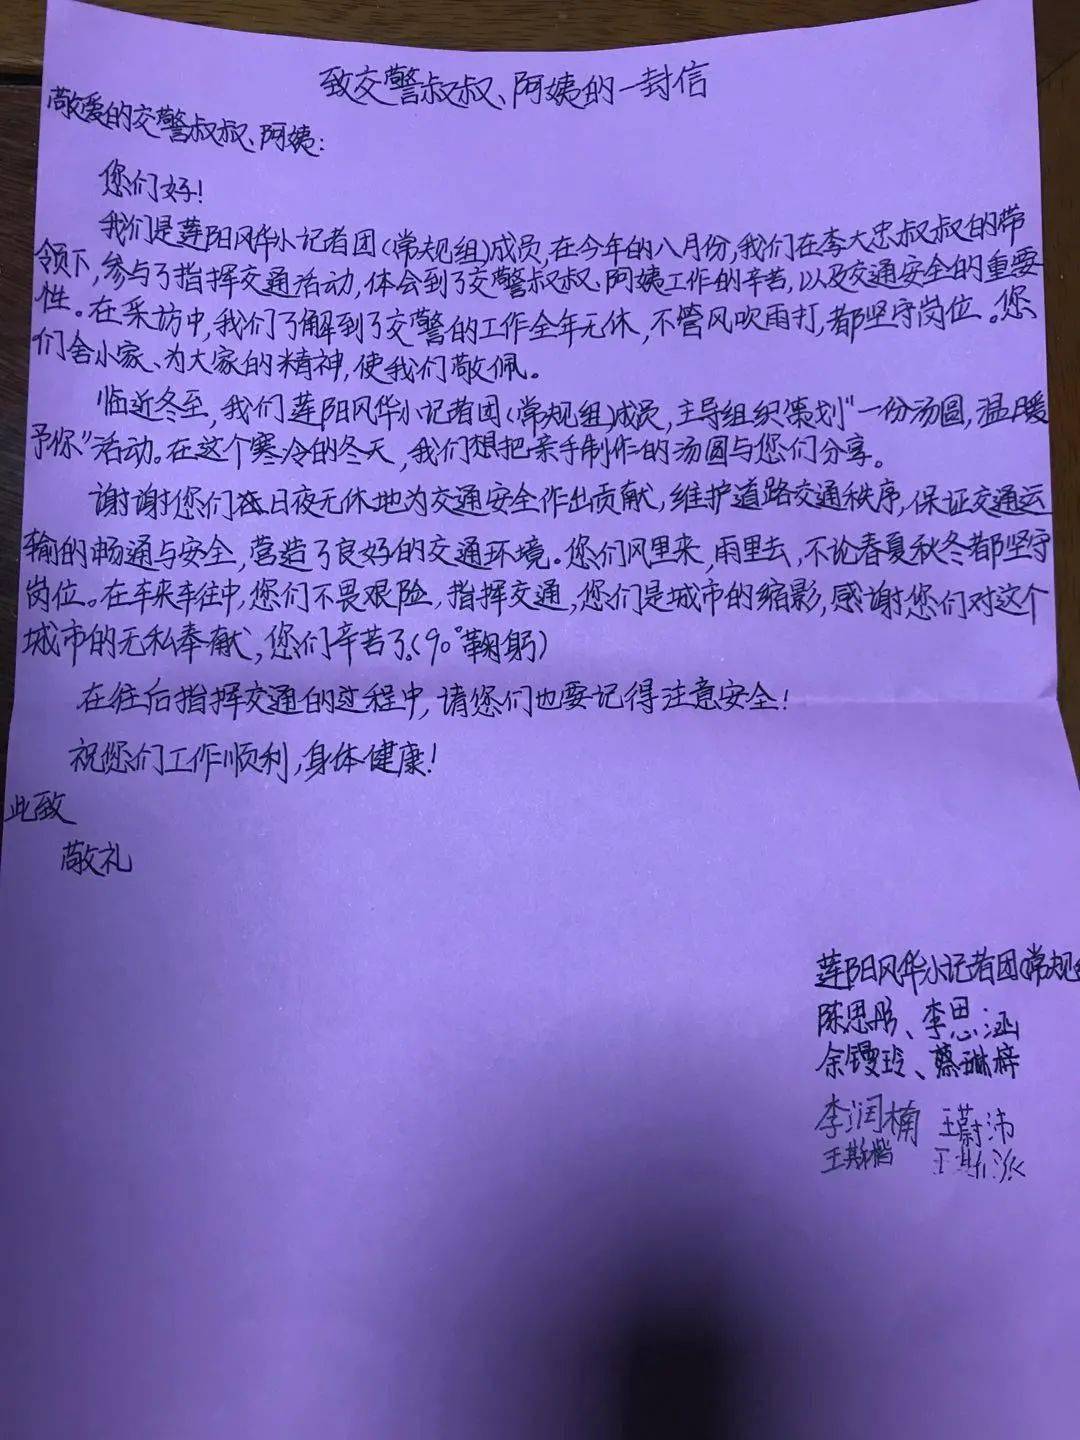 致交警叔叔、阿姨的一封信
敬爱的交警叔叔、阿姨:
您们好!
我们是莲阳风华小记者团(常规组)成员,在今年的八月份,我们在李大忠叔叔的带
领下,参与了指挥交通活动,体会到了交警叔叔、阿姨工作的辛苦,以及交通安全的重要
性。在采访中,我们了解到了交警的工作全年无休,不管风吹雨打,都坚守岗位。您
们舍小家、为大家的精神,使我们敬佩。
临近冬至,我们莲阳风华小记者团(常规组)成员,主导组织策划"一份汤圆,温暖
予你"活动。在这个寒冷的冬天,我们想把亲手制作的汤圆与您们分享。
谢谢您们日夜无休地为交通安全作出贡献,维护道路交通秩序,保证交通运
输的畅通与安全,营造了良好的交通环境。您们风里来,雨里去,不论春夏秋冬都坚守
岗位。在车来车往中,您们不畏艰险,指挥交通,您们是城市的缩影,感谢您们对这个
城市的无私奉献,您们辛苦了。(90°鞠躬)
在往后指挥交通的过程中,请您们也要记得注意安全!
祝您们工作顺利,身体健康!
此致
敬礼
莲阳风华小记者团(常规
陈思彤、李思涵
余镘玲、蔡琳梓
李润楠 王蔚沛
王斯楷